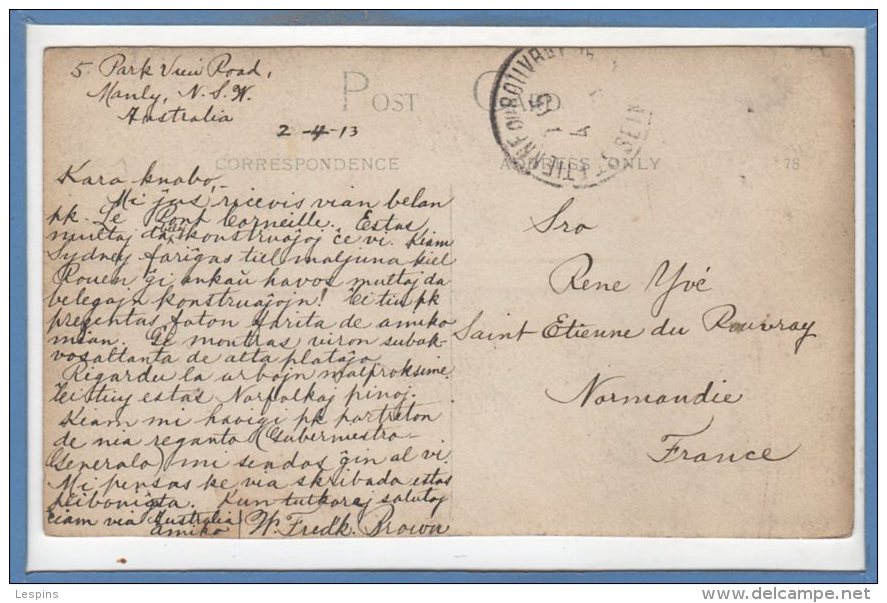 5. Park View Road,
Manly, N. S. W.
Australia
2-4-13
POST CARD
CORRESPONDENCE
ADDRESS ONLY
78
Kara knabo,-
Mi ĵus ricevis vian belan
pk. Le Pont Corneille. Estas
multaj da konstruaĵoj ĉe vi. Kiam
Sydney fariĝas tiel maljuna kiel
Rouen ĝi ankaŭ havos multaj da
belegajn konstruaĵojn! Ĉi tiu pk
prezentas foton farita de amiko
mian. Ĝe montras viron subak-
vosaltanta de alta plataĵo.
Rigardu la arbojn malproksime.
Ĉi tiuj estas Norfolkaj pinoj.
Kiam mi havigi pk portreton
de nia reganto (Gubernestro-
Generalo) mi sendos ĝin al vi.
Mi pensas ke via skribado estas
plibonigta. Kun tutkoraj salutoj
ĉiam via Australia
amiko W. Fredk. Brown
Sro
Rene Yvé
Saint Etienne du Rouvray
Normandie
France
Lespins
www.delcampe.net